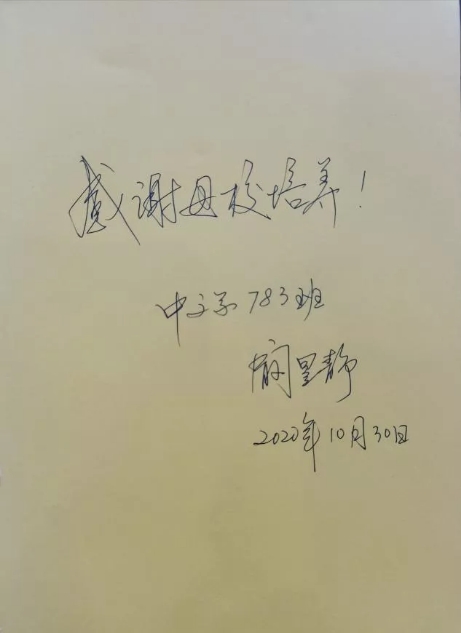 感谢母校培养!
中文系783班
静
2020年10月30日